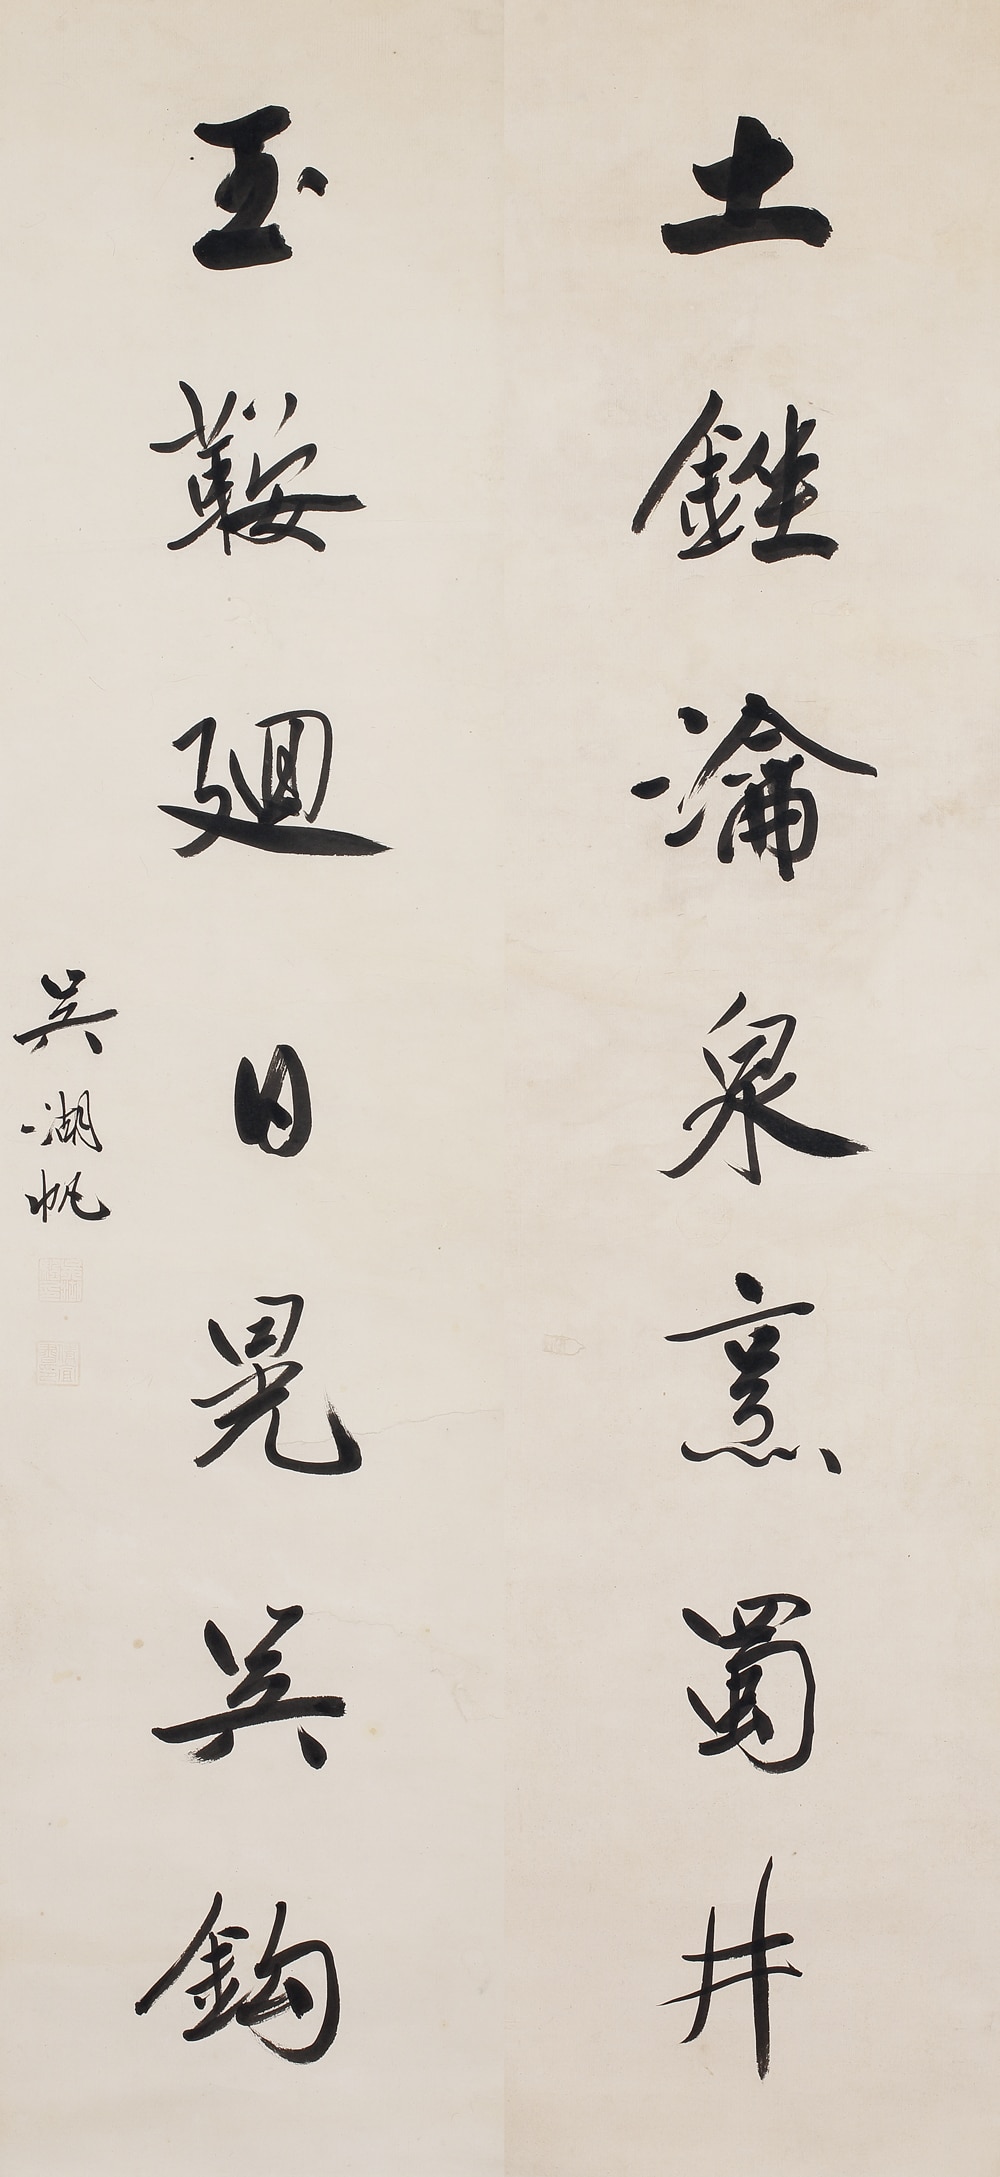 土銼瀹泉烹蜀井
玉鞍迴日晃吳鈎
吳湖帆